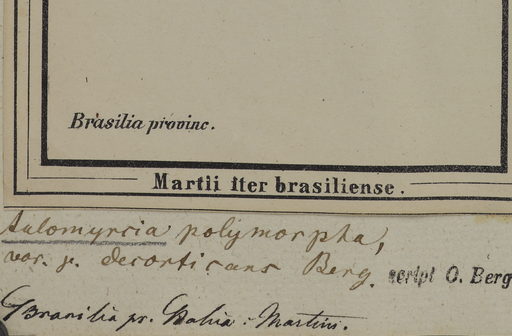 Brasilia provinc.
Martii iter brasiliense.
Aulomyrcia polymorpha,
var. γ. decorticans Berg. script O. Berg
Brasilia pr. Bahia: Martius.